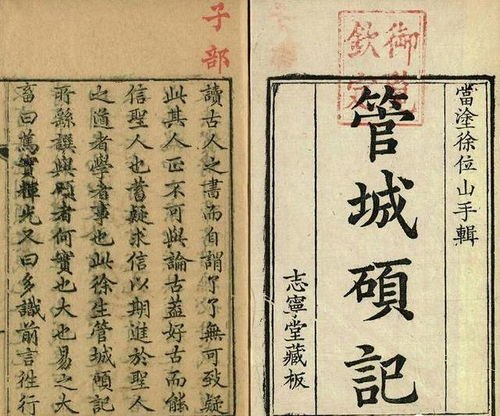 御覽
欽定
當塗徐位山手輯
管城碩記
志寧堂藏板
子部
讀古人之書而自謂了了無可致疑
此其人正不可與論古蓋好古而能
信聖人也蓄疑求信以期進於聖人
之道者學者事也此徐生管城碩記
所繇譔與碩者何實也大也易之
畜曰篤實輝光又曰多識前言往行